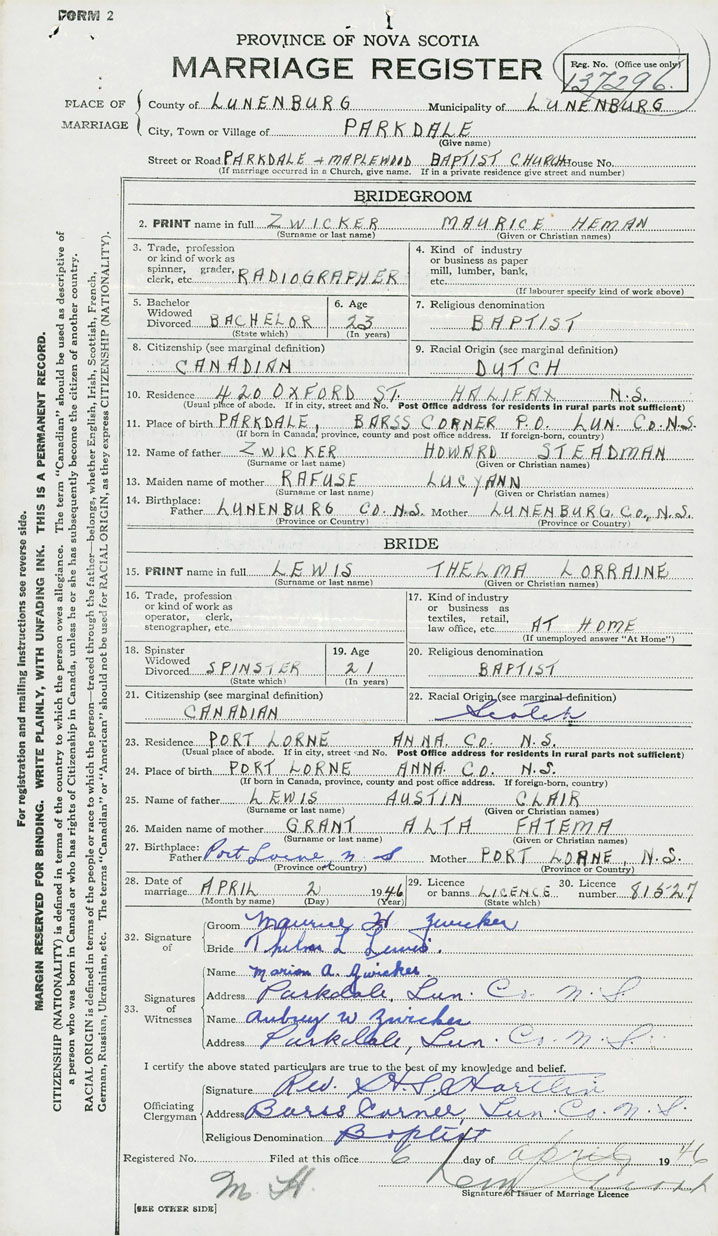 FORM 2
1
PROVINCE OF NOVA SCOTIA
MARRIAGE REGISTER
Reg. No. (Office use only)
137296.
PLACE OF MARRIAGE
County of LUNENBURG Municipality of LUNENBURG
City, Town or Village of PARKDALE
(Give name)
Street or Road PARKDALE + MAPLEWOOD BAPTIST CHURCH House No.
(If marriage occurred in a Church, give name. If in a private residence give street and number)
BRIDEGROOM
2. PRINT name in full ZWICKER MAURICE HEMAN
(Surname or last name) (Given or Christian names)
3. Trade, profession
or kind of work as
spinner, grader,
clerk, etc. RADIOGRAPHER
4. Kind of industry
or business as paper
mill, lumber, bank,
etc.
(If labourer specify kind of work above)
5. Bachelor
Widowed
Divorced BACHELOR
(State which)
6. Age
23
(In years)
7. Religious denomination
BAPTIST
8. Citizenship (see marginal definition)
CANADIAN
9. Racial Origin (see marginal definition)
DUTCH
10. Residence 420 OXFORD ST. HALIFAX N.S.
(Usual place of abode. If in city, street and No. Post Office address for residents in rural parts not sufficient)
11. Place of birth PARKDALE, BARSS CORNER P.O. LUN. CO. N.S.
(If born in Canada, province, county and post office address. If foreign-born, country)
12. Name of father ZWICKER HOWARD STEADMAN
(Surname or last name) (Given or Christian names)
13. Maiden name of mother RAFUSE LUCYANN
(Surname or last name) (Given or Christian names)
14. Birthplace:
Father LUNENBURG CO. N.S. Mother LUNENBURG CO., N.S.
(Province or Country) (Province or Country)
BRIDE
15. PRINT name in full LEWIS THELMA LORRAINE
(Surname or last name) (Given or Christian names)
16. Trade, profession
or kind of work as
operator, clerk,
stenographer, etc.
17. Kind of industry
or business as
textiles, retail,
law office, etc. AT HOME
(If unemployed answer "At Home")
18. Spinster
Widowed
Divorced SPINSTER
(State which)
19. Age
21
(In years)
20. Religious denomination
BAPTIST
21. Citizenship (see marginal definition)
CANADIAN
22. Racial Origin (see marginal definition)
Scotch
23. Residence PORT LORNE ANNA. CO. N.S.
(Usual place of abode. If in city, street and No. Post Office address for residents in rural parts not sufficient)
24. Place of birth PORT LORNE ANNA. CO. N.S.
(If born in Canada, province, county and post office address. If foreign-born, country)
25. Name of father LEWIS AUSTIN CLAIR
(Surname or last name) (Given or Christian names)
26. Maiden name of mother GRANT ALTA FATEMA
(Surname or last name) (Given or Christian names)
27. Birthplace:
Father Port Lorne, N S Mother PORT LORNE, N.S.
(Province or Country) (Province or Country)
28. Date of marriage APRIL 2 1946
(Month by name) (Day) (Year)
29. Licence or banns LICENCE
(State which)
30. Licence number 81527
32. Signature of
Groom Maurice H Zwicker
Bride Thelma L Lewis.
33. Signatures of Witnesses
Name Marion A. Zwicker
Address Parkdale, Lun. Co. N. S.
Name Aubrey W Zwicker
Address Parkdale, Lun. Co. N. S.
I certify the above stated particulars are true to the best of my knowledge and belief.
Officiating Clergyman
Signature Rev.
Address Barss Corner, Lun. Co. N. S.
Religious Denomination Baptist
Registered No. Filed at this office 6 day of April 1946
M. H.
Signature of Issuer of Marriage Licence
[SEE OTHER SIDE]
For registration and mailing instructions see reverse side.
MARGIN RESERVED FOR BINDING. WRITE PLAINLY, WITH UNFADING INK. THIS IS A PERMANENT RECORD.
CITIZENSHIP (NATIONALITY) is defined in terms of the country to which the person owes allegiance. The term "Canadian" should be used as descriptive of
a person who was born in Canada or who has rights of Citizenship in Canada, unless he or she has subsequently become the citizen of another country.
RACIAL ORIGIN is defined in terms of the people or race to which the person—traced through the father—belongs, whether English, Irish, Scottish, French,
German, Russian, Ukrainian, etc. The terms "Canadian" or "American" should not be used for RACIAL ORIGIN, as they express CITIZENSHIP (NATIONALITY).